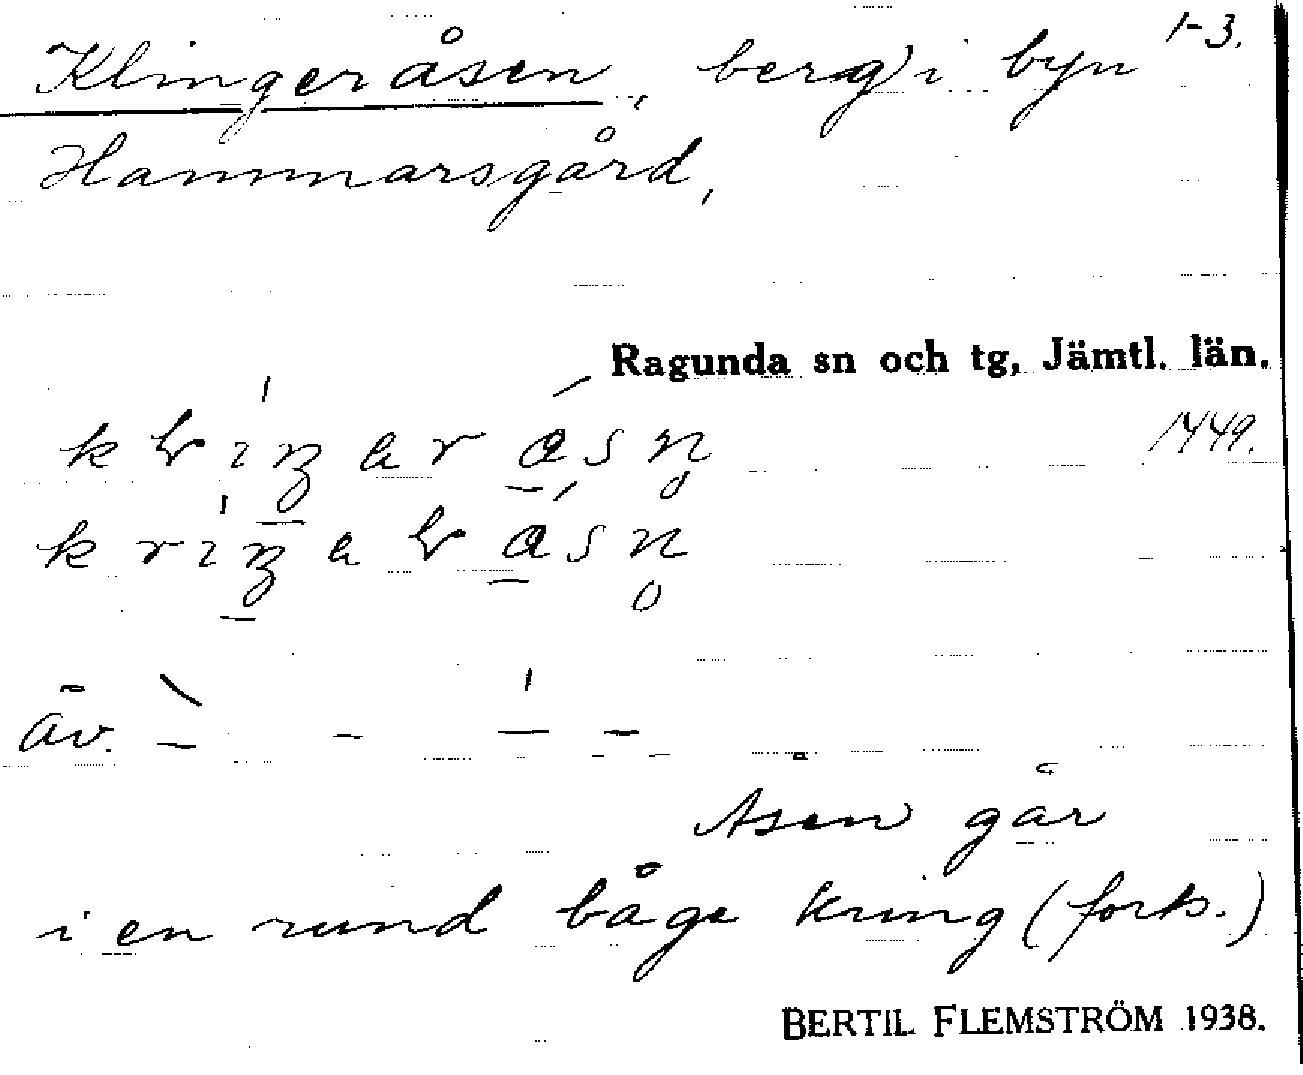 1-3.
Klingeråsen, berg i byn
Hammarsgård,
Ragunda sn och tg, Jämtl. län.
1449.
äv.
Åsen går
i en rund båge kring (forts.)
BERTIL FLEMSTRÖM 1938.